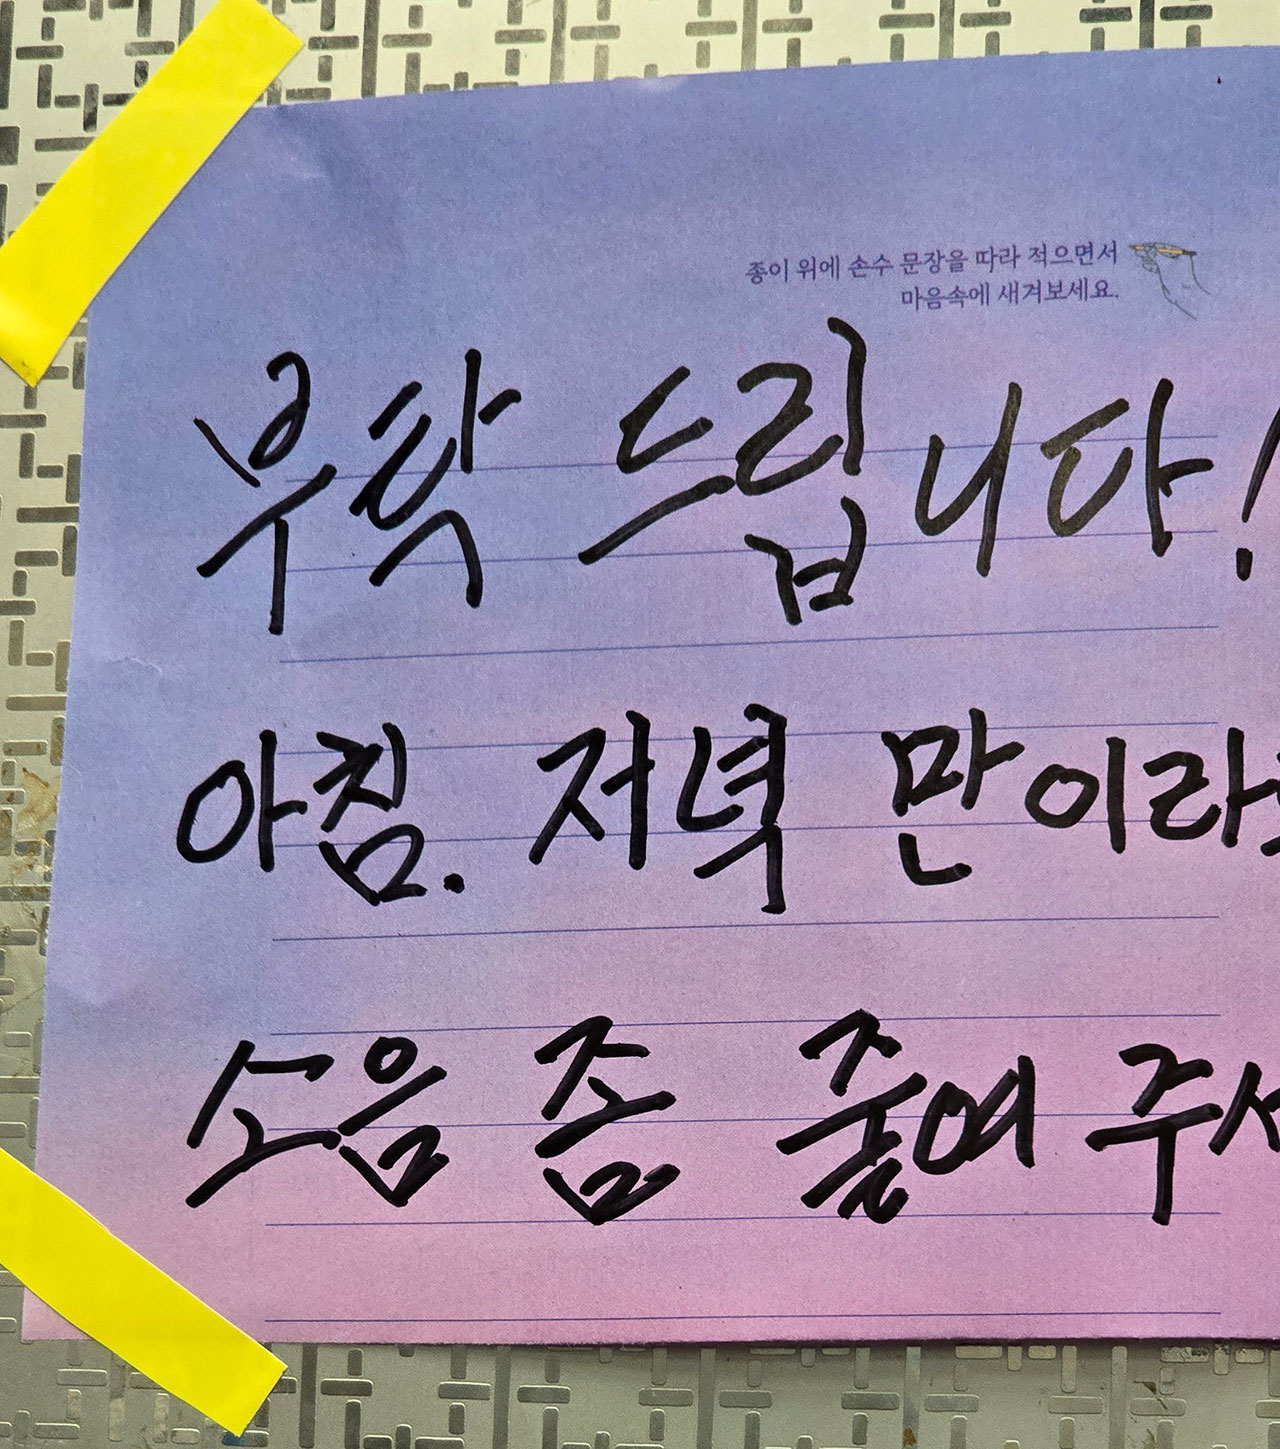 종이 위에 손수 문장을 따라 적으면서
마음속에 새겨보세요.
부탁 드립니다!
아침. 저녁 만이라
소음 좀 줄여 주세